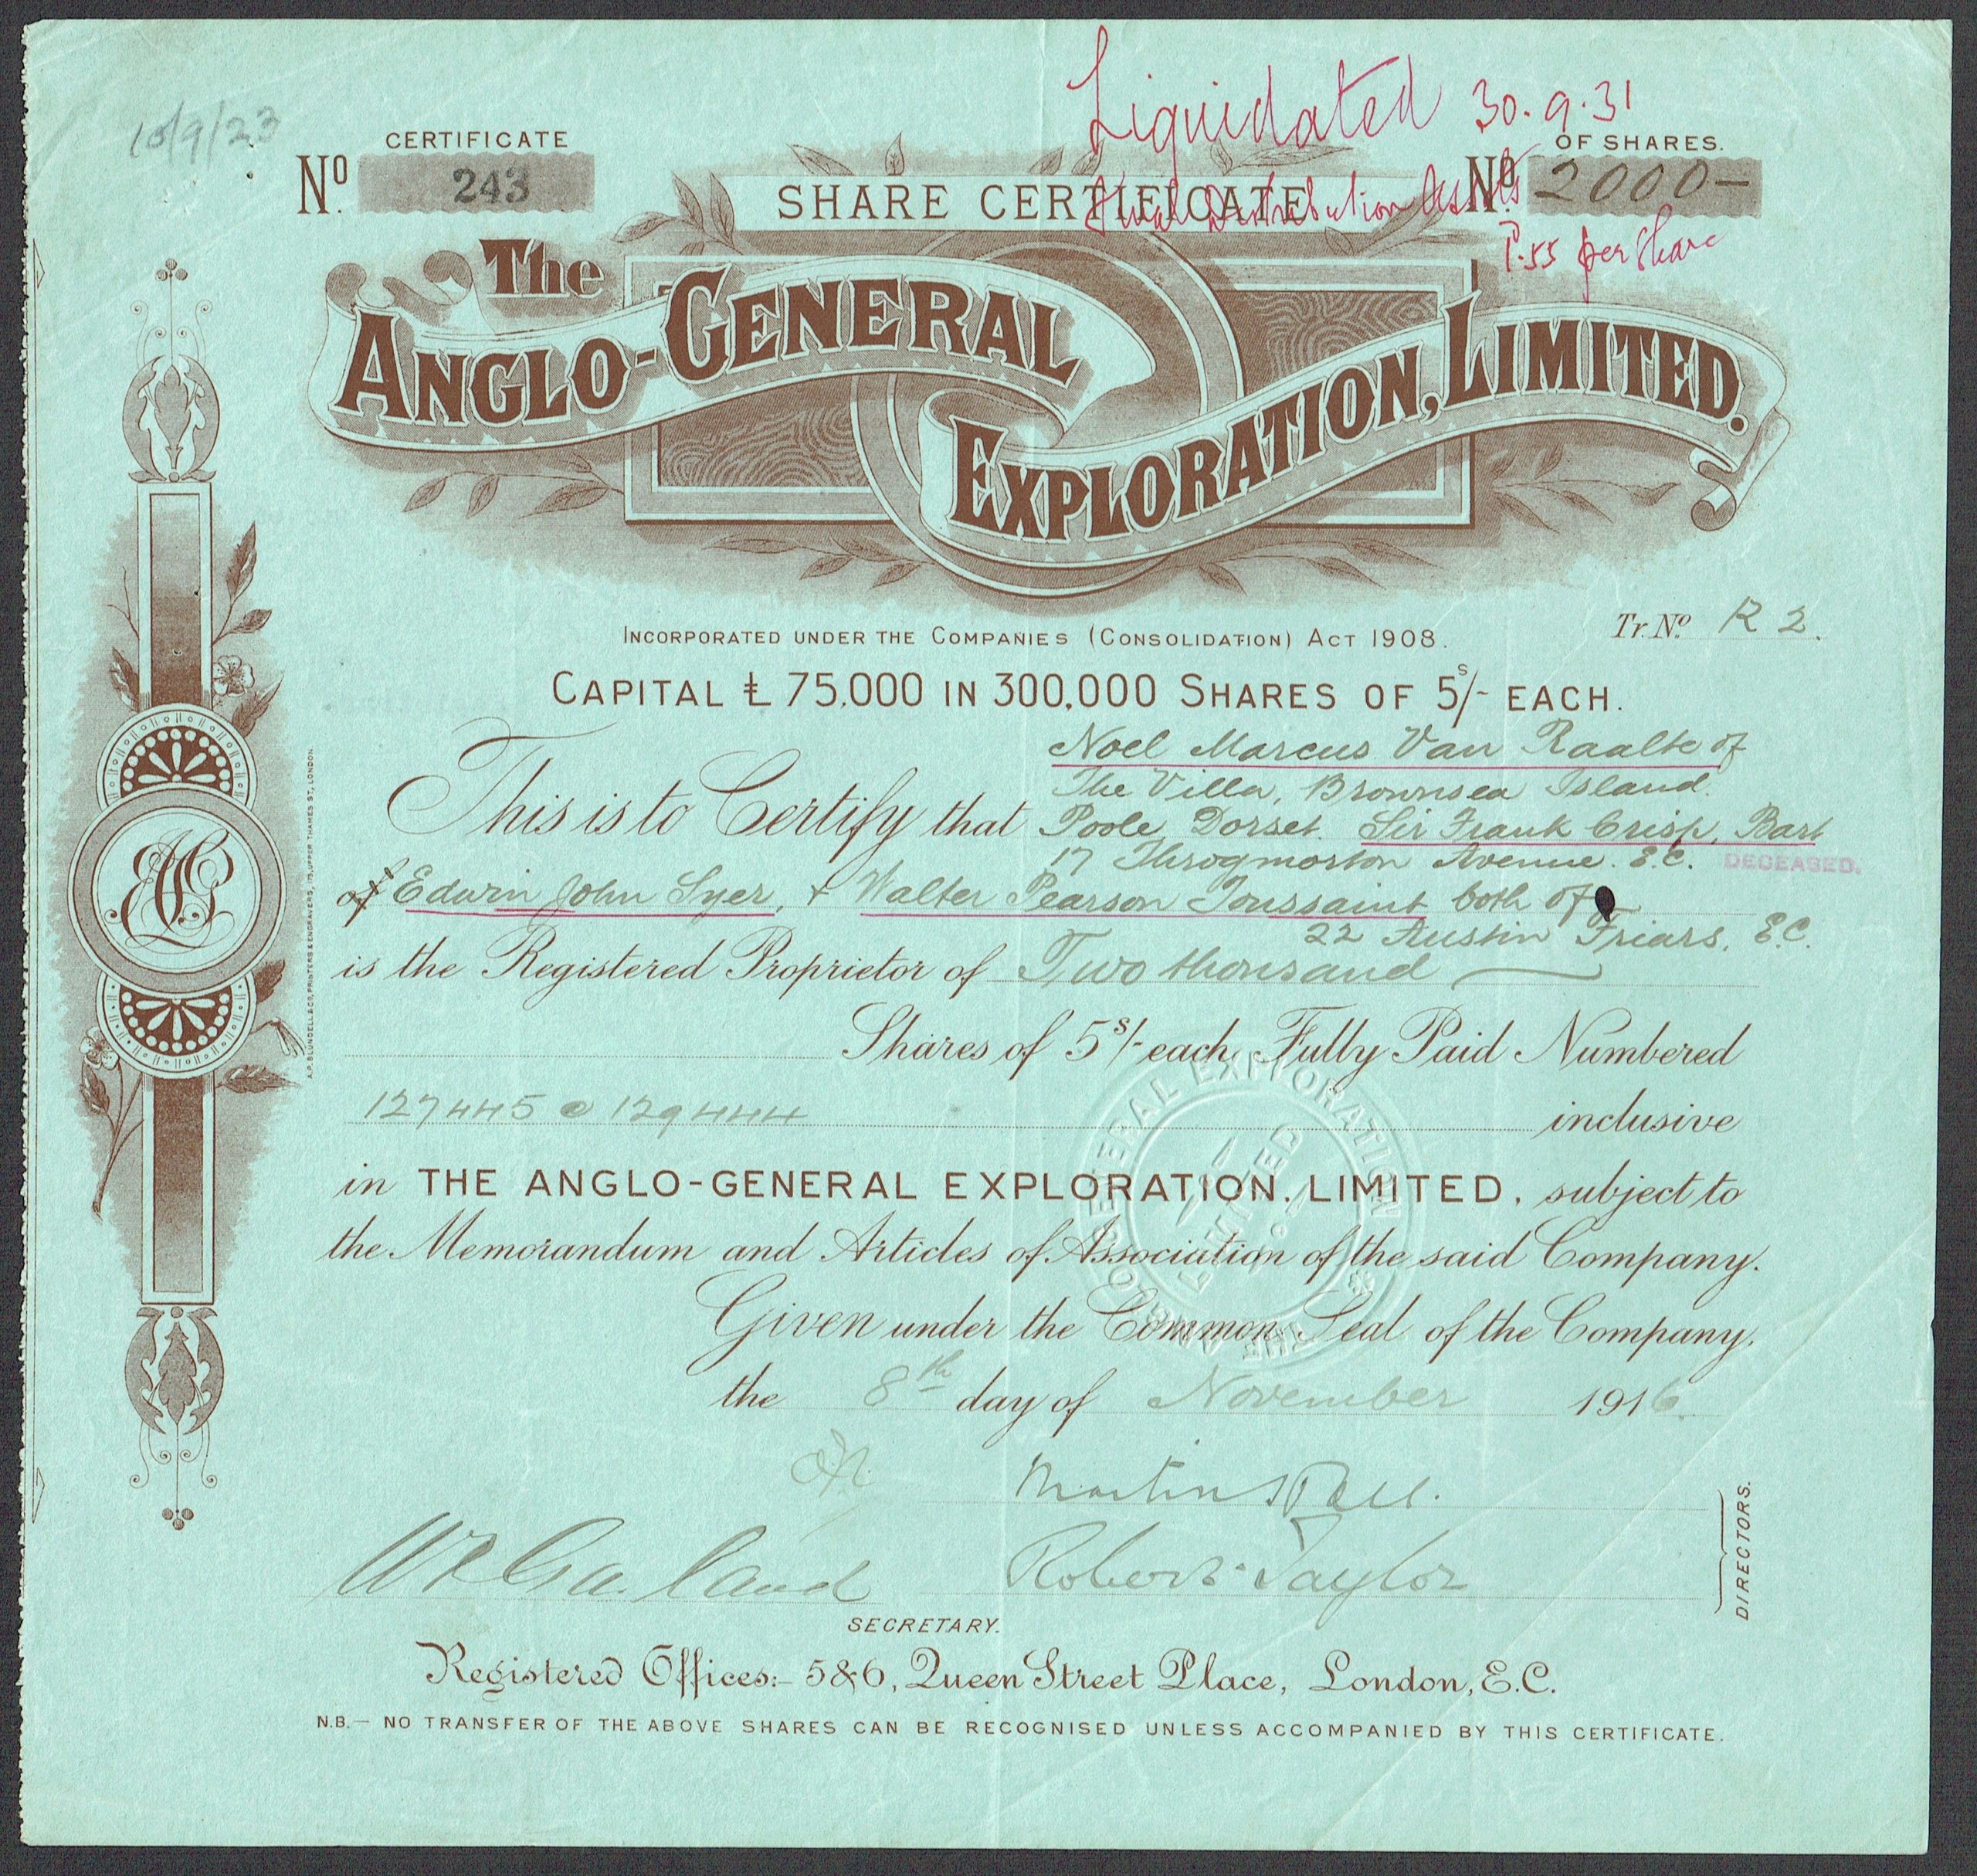 10/9/23
Liquidated 30.9.31
CERTIFICATE
No. 243
OF SHARES.
No. 2000-
SHARE CERTIFICATE
Final Distribution Assets
P.55 per Share
The
ANGLO-GENERAL
EXPLORATION, LIMITED.
INCORPORATED UNDER THE COMPANIES (CONSOLIDATION) ACT 1908.
Tr. No. R 2.
CAPITAL £ 75,000 IN 300,000 SHARES OF 5s/- EACH.
Noel Marcus Van Raalte of
The Villa, Brownsea Island.
This is to Certify that Poole Dorset. Sir Frank Crisp, Bart
17 Throgmorton Avenue. E.C. DECEASED.
of Edwin John Syer, + Walter Pearson Toussaint both of
22 Austin Friars, E.C.
is the Registered Proprietor of Two thousand
Shares of 5s/- each, Fully Paid Numbered
127445 @ 129444 inclusive
in THE ANGLO-GENERAL EXPLORATION, LIMITED, subject to
the Memorandum and Articles of Association of the said Company.
Given under the Common Seal of the Company,
the 8th day of November 1916
Robert Taylor
DIRECTORS.
SECRETARY.
Registered Offices:- 5&6, Queen Street Place, London, E.C.
N.B.— NO TRANSFER OF THE ABOVE SHARES CAN BE RECOGNISED UNLESS ACCOMPANIED BY THIS CERTIFICATE.
A.P. BLUNDELL & CO. PRINTERS & ENGRAVERS, 115, UPPER THAMES ST, LONDON.
THE ANGLO-GENERAL EXPLORATION
LIMITED